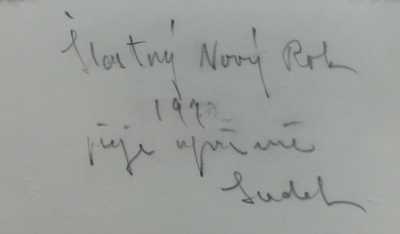 Šťastný Nový Rok
přeje upřímně
Sudek